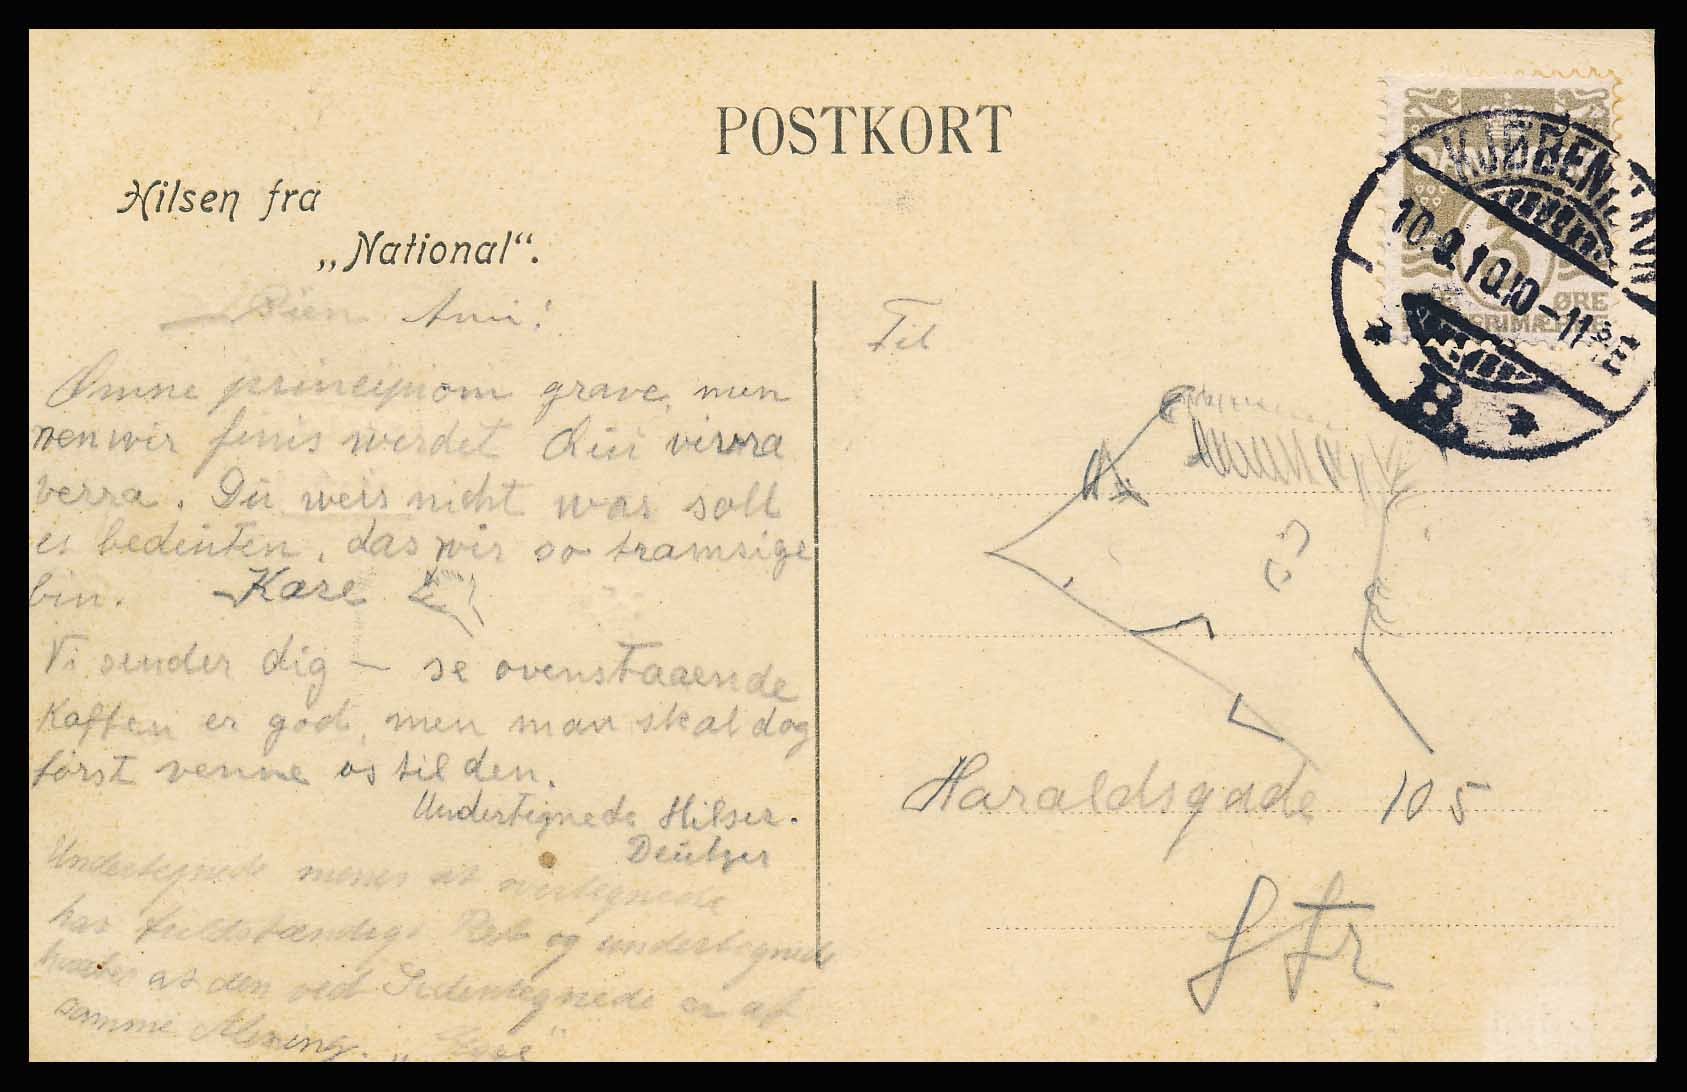 POSTKORT
Hilsen fra
„National“.
KJØBENHAVN
10.9.10.10-11 E
B.
DANMARK
3
ØRE ØRE
Ami!
Omne principiom grave, men
nenwir finis werdet Qui virrra
verra. Du weis nicht was soll
es bedeuten, das wir so tramsige
bin. Kare
Vi sender dig — se ovenstaaende
Kaffen er god, men man skal dog
først venne os til den.
Undertegnede Hilser.
Deutzer
Undertegnede mener at overtegnede
har fuldstændigt Ret og undertegnede
at den ved Sidentegnede er af
samme Mening.
Til
Haraldsgade 105
Str.